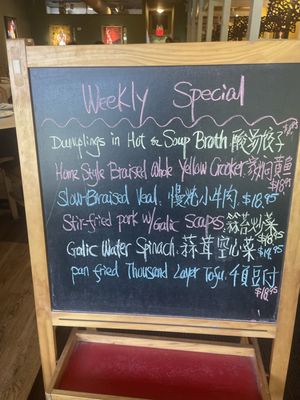 Weekly Special
Dumplings in Hot & Soup Broth 酸汤饺子
Home Style Braised Whole Yellow Croaker 家焖黄鱼 $18.95
Slow-Braised Veal 慢炖小牛肉 $18.95
Stir-fried pork w/ Garlic Scaps 蒜苔炒菜 $18.95
Garlic Water Spinach 蒜茸空心菜 $14.95
pan fried Thousand Layer Tofu 千页豆付 $18.95